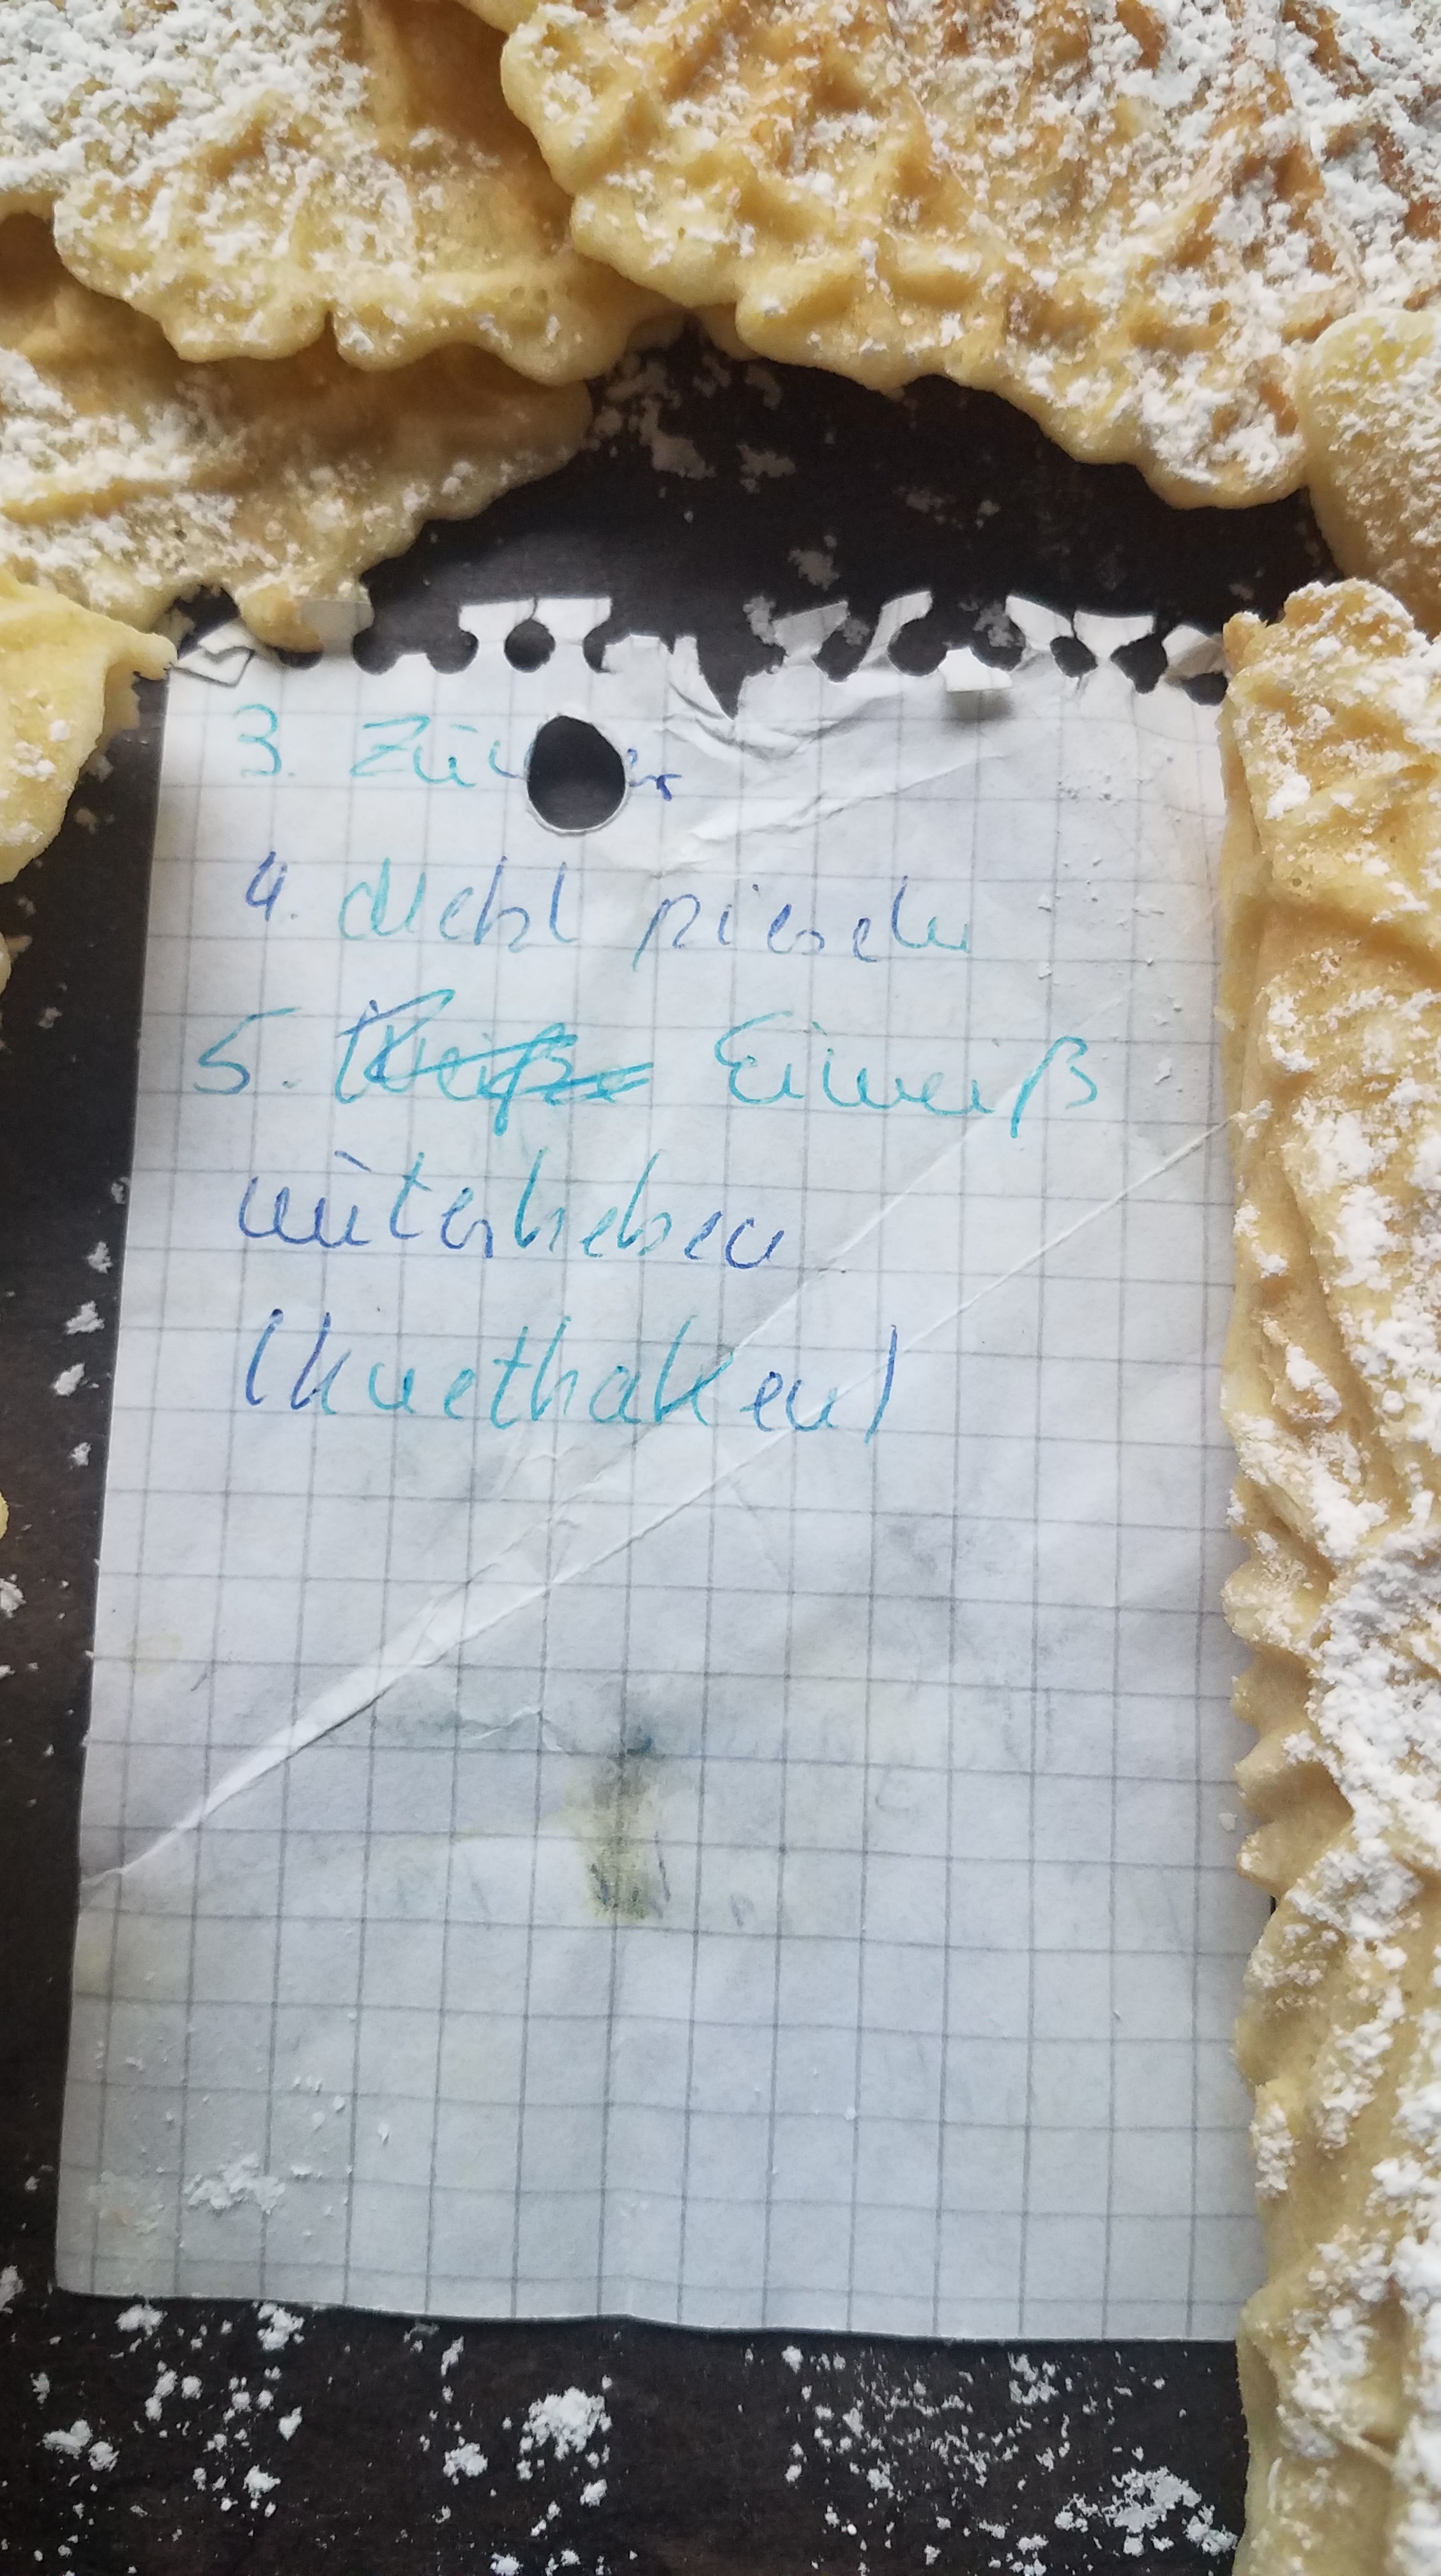 3. Zucker
4. Mehl rieseln
5. Eiweiß
unterheben
(Knethaken)